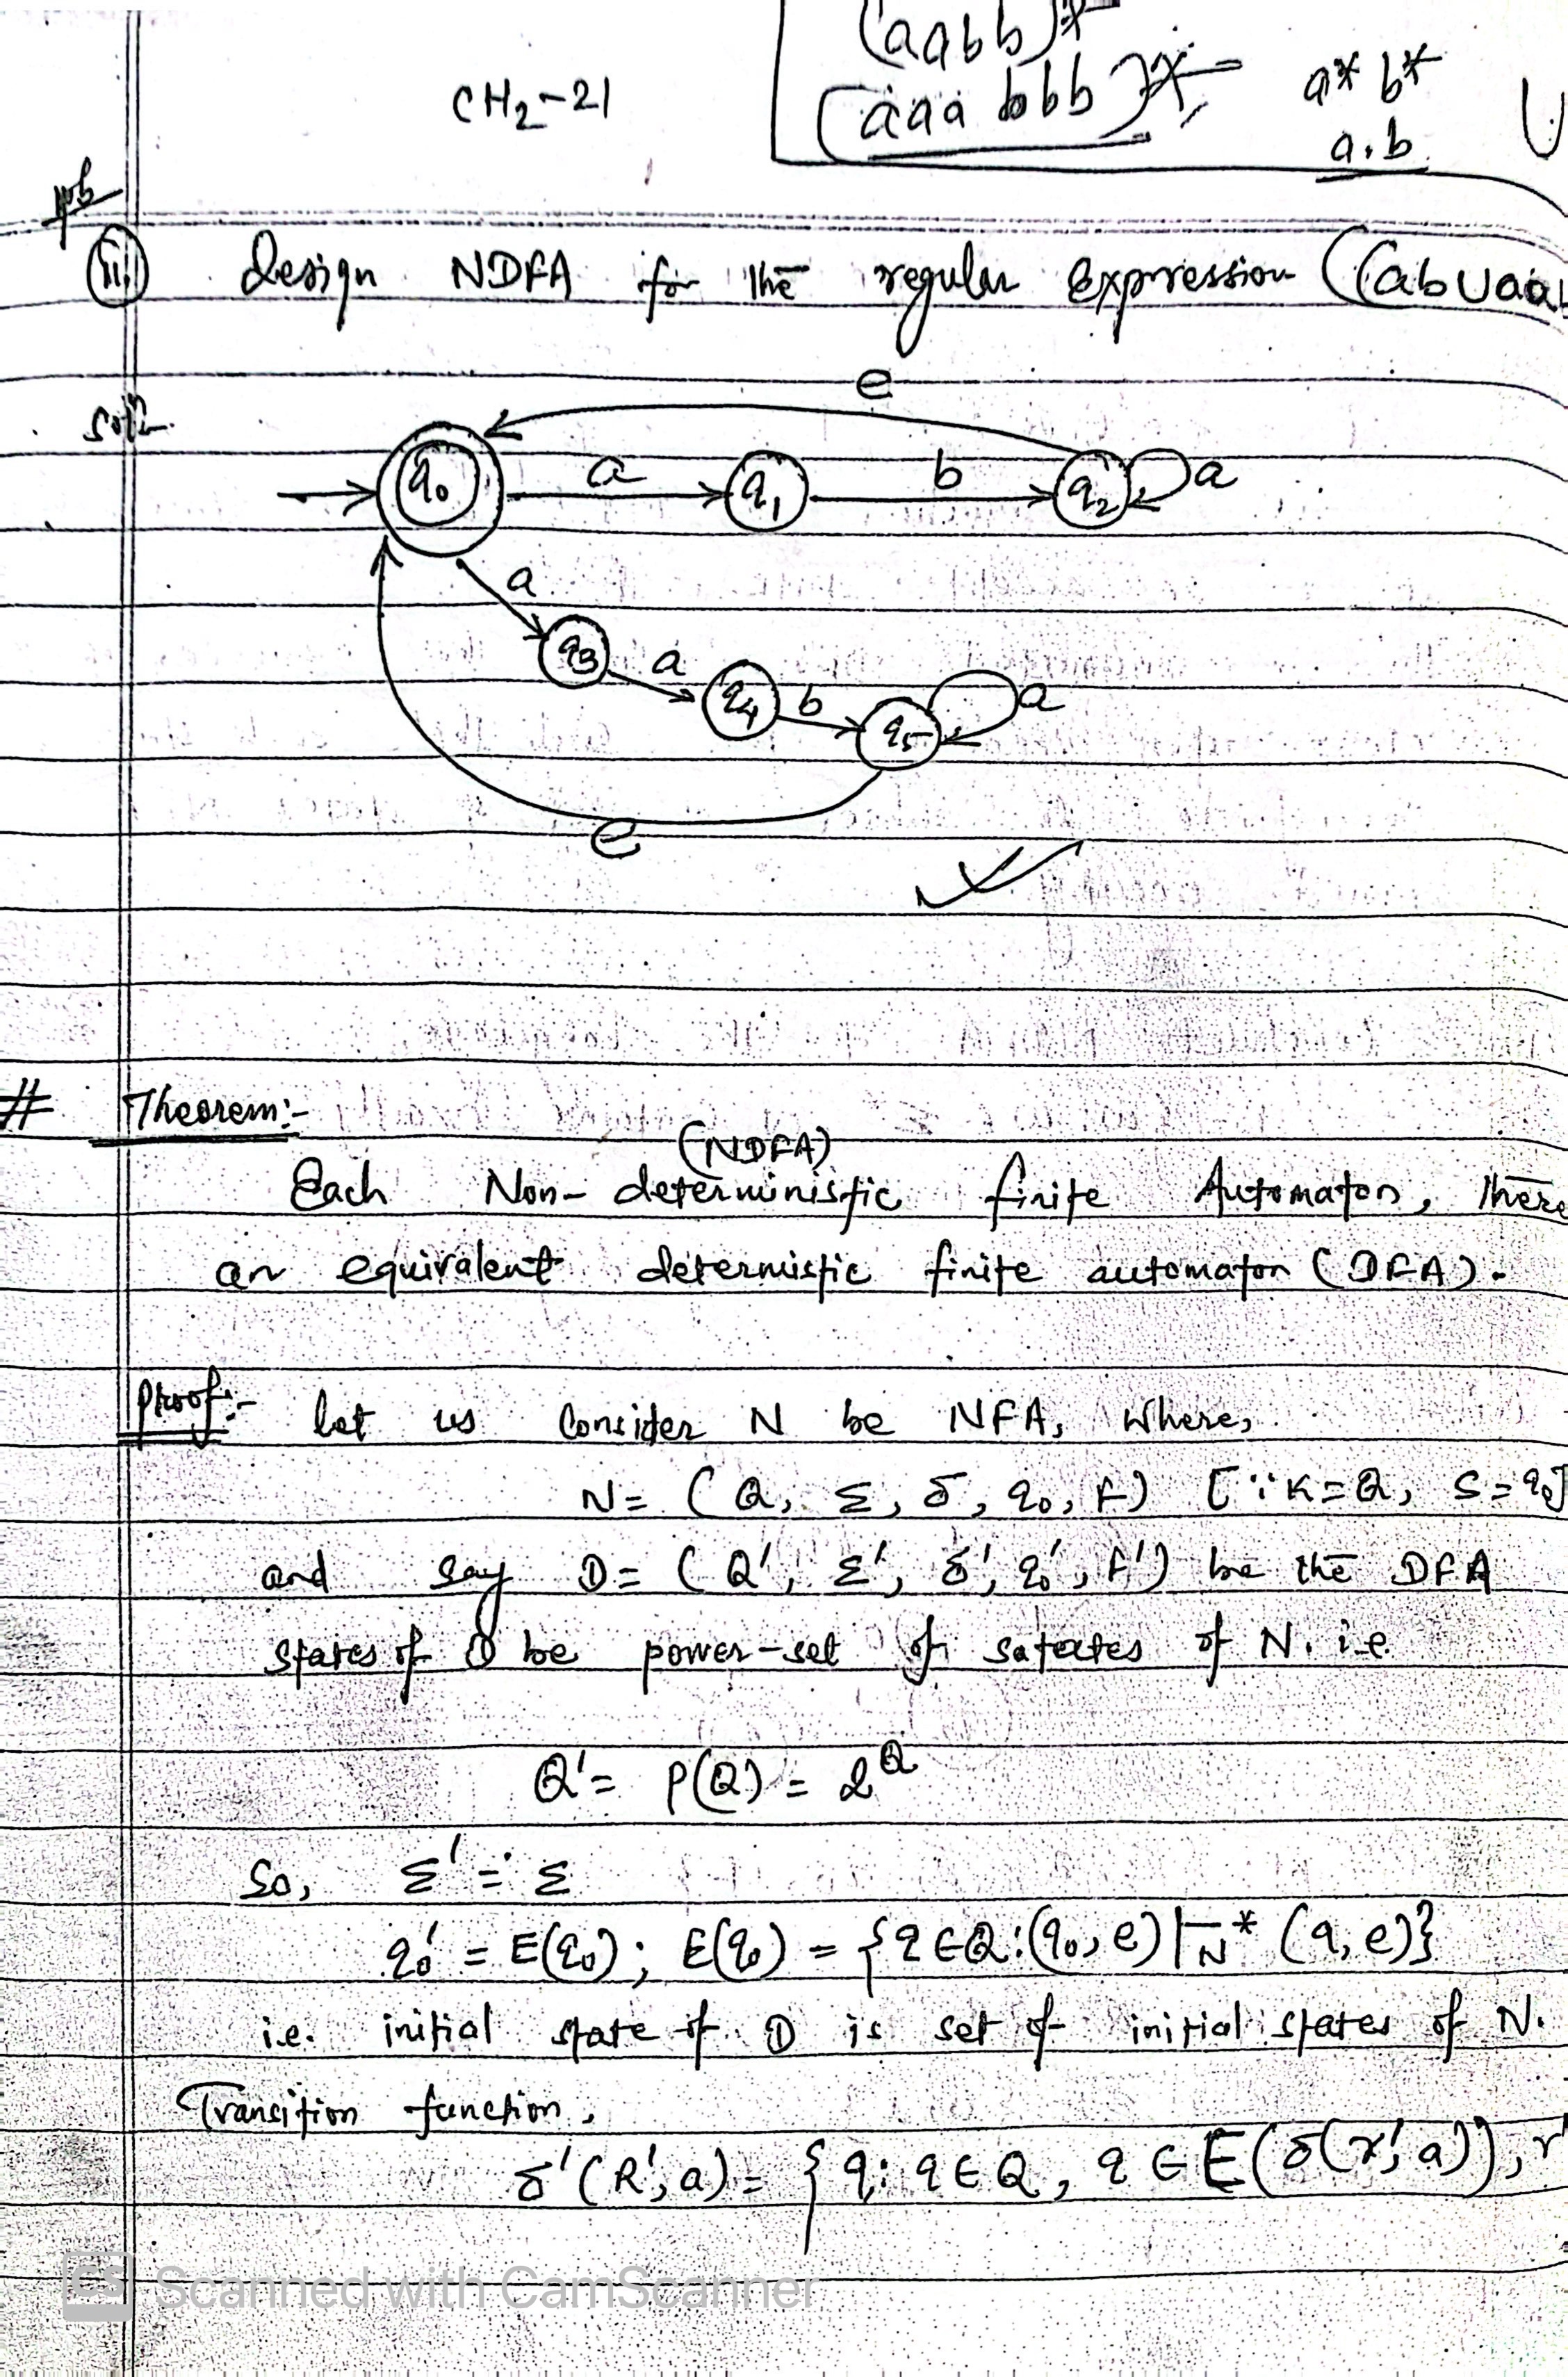 (aabb)*
CH2-21
(aaa bbb)*
a* b*
a.b
U
ii)
design NDFA for the regular expression ((abUaa
sol:
e
q0 a q1 b q2 a
a
q3 a q4 b q5 a
e
# Theorem:-
(NDFA)
Each Non-deterministic finite Automaton, there
an equivalent determistic finite automaton (DFA).
Proof:- let us Consider N be NFA, where,
N = (Q, Σ, δ, q0, F) [∵ K=Q, S=q0]
and say D = (Q', Σ', δ', q0', F') be the DFA
states of D be power-set of of N. i.e.
Q' = P(Q) = 2^Q
So, Σ' = Σ
q0' = E(q0); E(q0) = {q ∈ Q: (q0, e) ⊢N* (q, e)}
i.e. initial state of D is set of initial states of N.
Transition function,
δ'(R', a) = {q: q ∈ Q, q ∈ E(δ(r', a)), r'
CS Scanned with CamScanner